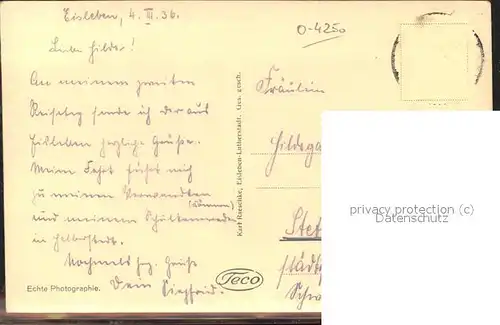 Eisleben, 4. III. 36.
Liebe Hilde!
An meinem zweiten
Reisetag sende ich dir aus
Eisleben herzliche Grüße.
Meine Fahrt führt mich
zu meinen Verwandten
und meinem Schulkameraden
in Halberstadt.
Nochmals hzg. Grüße
Dein Siegfried.
Echte Photographie.
Karl Raeschke, Eisleben-Lutherstadt. Ges. gesch.
Teco
0-4250
Fräulein
Hildega
Stet
städt
Schw
privacy protection (c)
Datenschutz